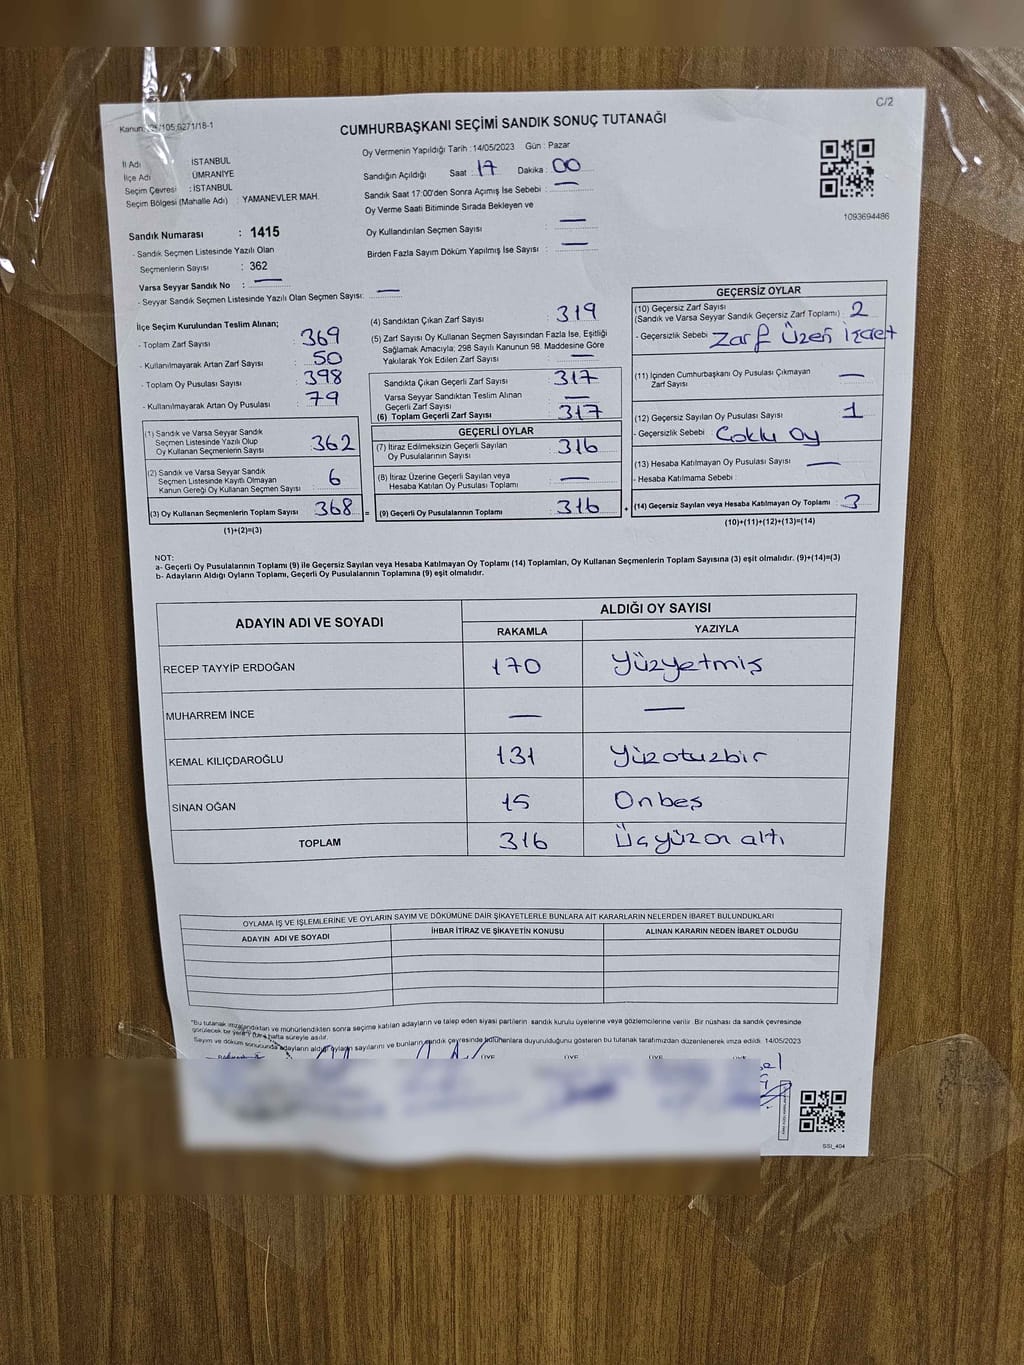 C/2
Kanun: /105;6271/18-1
CUMHURBAŞKANI SEÇİMİ SANDIK SONUÇ TUTANAĞI
İl Adı : İSTANBUL
İlçe Adı : ÜMRANİYE
Seçim Çevresi : İSTANBUL
Seçim Bölgesi (Mahalle Adı) : YAMANEVLER MAH.
Oy Vermenin Yapıldığı Tarih : 14/05/2023 Gün : Pazar
Sandığın Açıldığı Saat : 17 Dakika : 00
Sandık Saat 17:00'den Sonra Açımış İse Sebebi : —
Oy Verme Saati Bitiminde Sırada Bekleyen ve
Oy Kullandırılan Seçmen Sayısı : —
Birden Fazla Sayım Döküm Yapılmış İse Sayısı : —
1093694486
Sandık Numarası : 1415
- Sandık Seçmen Listesinde Yazılı Olan
Seçmenlerin Sayısı : 362
Varsa Seyyar Sandık No : —
- Seyyar Sandık Seçmen Listesinde Yazılı Olan Seçmen Sayısı: —
İlçe Seçim Kurulundan Teslim Alınan;
- Toplam Zarf Sayısı : 369
- Kullanılmayarak Artan Zarf Sayısı : 50
- Toplam Oy Pusulası Sayısı : 398
- Kullanılmayarak Artan Oy Pusulası : 79
(1) Sandık ve Varsa Seyyar Sandık
Seçmen Listesinde Yazılı Olup
Oy Kullanan Seçmenlerin Sayısı : 362
(2) Sandık ve Varsa Seyyar Sandık
Seçmen Listesinde Kayıtlı Olmayan
Kanun Gereği Oy Kullanan Seçmen Sayısı : 6
(3) Oy Kullanan Seçmenlerin Toplam Sayısı : 368 =
(1)+(2)=(3)
(4) Sandıktan Çıkan Zarf Sayısı : 319
(5) Zarf Sayısı Oy Kullanan Seçmen Sayısından Fazla İse, Eşitliği
Sağlamak Amacıyla; 298 Sayılı Kanunun 98. Maddesine Göre
Yakılarak Yok Edilen Zarf Sayısı : —
Sandıkta Çıkan Geçerli Zarf Sayısı : 317
Varsa Seyyar Sandıktan Teslim Alınan
Geçerli Zarf Sayısı : —
(6) Toplam Geçerli Zarf Sayısı : 317
GEÇERLİ OYLAR
(7) İtiraz Edilmeksizin Geçerli Sayılan
Oy Pusulalarının Sayısı : 316
(8) İtiraz Üzerine Geçerli Sayılan veya
Hesaba Katılan Oy Pusulası Toplamı : —
(9) Geçerli Oy Pusulalarının Toplamı : 316 +
GEÇERSİZ OYLAR
(10) Geçersiz Zarf Sayısı
(Sandık ve Varsa Seyyar Sandık Geçersiz Zarf Toplamı) : 2
- Geçersizlik Sebebi : Zarf Üzeri İşaet
(11) İçinden Cumhurbaşkanı Oy Pusulası Çıkmayan
Zarf Sayısı : —
(12) Geçersiz Sayılan Oy Pusulası Sayısı : 1
- Geçersizlik Sebebi : Çoklu Oy
(13) Hesaba Katılmayan Oy Pusulası Sayısı : —
- Hesaba Katılmama Sebebi :
(14) Geçersiz Sayılan veya Hesaba Katılmayan Oy Toplamı : 3
(10)+(11)+(12)+(13)=(14)
NOT:
a- Geçerli Oy Pusulalarının Toplamı (9) ile Geçersiz Sayılan veya Hesaba Katılmayan Oy Toplamı (14) Toplamları, Oy Kullanan Seçmenlerin Toplam Sayısına (3) eşit olmalıdır. (9)+(14)=(3)
b- Adayların Aldığı Oyların Toplamı, Geçerli Oy Pusulalarının Toplamına (9) eşit olmalıdır.
ADAYIN ADI VE SOYADI
ALDIĞI OY SAYISI
RAKAMLA YAZIYLA
RECEP TAYYİP ERDOĞAN 170 Yüzyetmiş
MUHARREM İNCE — —
KEMAL KILIÇDAROĞLU 131 Yüzotuzbir
SİNAN OĞAN 15 Onbeş
TOPLAM 316 Üçyüzon altı
OYLAMA İŞ VE İŞLEMLERİNE VE OYLARIN SAYIM VE DÖKÜMÜNE DAİR ŞİKAYETLERLE BUNLARA AİT KARARLARIN NELERDEN İBARET BULUNDUKLARI
ADAYIN ADI VE SOYADI İHBAR İTİRAZ VE ŞİKAYETİN KONUSU ALINAN KARARIN NEDEN İBARET OLDUĞU
"Bu tutanak imzalandıktan ve mühürlendikten sonra seçime katılan adayların ve talep eden siyasi partilerin sandık kurulu üyelerine veya gözlemcilerine verilir. Bir nüshası da sandık çevresinde
görülecek bir yere 1 hafta süreyle asılır.
Sayım ve döküm sonucunda adayların aldığı oyların sayılarını ve bunların sandık çevresinde bulunanlara duyurulduğunu gösteren bu tutanak tarafımızdan düzenlenerek imza edildi. 14/05/2023
ÜYE ÜYE ÜYE
SSI_404